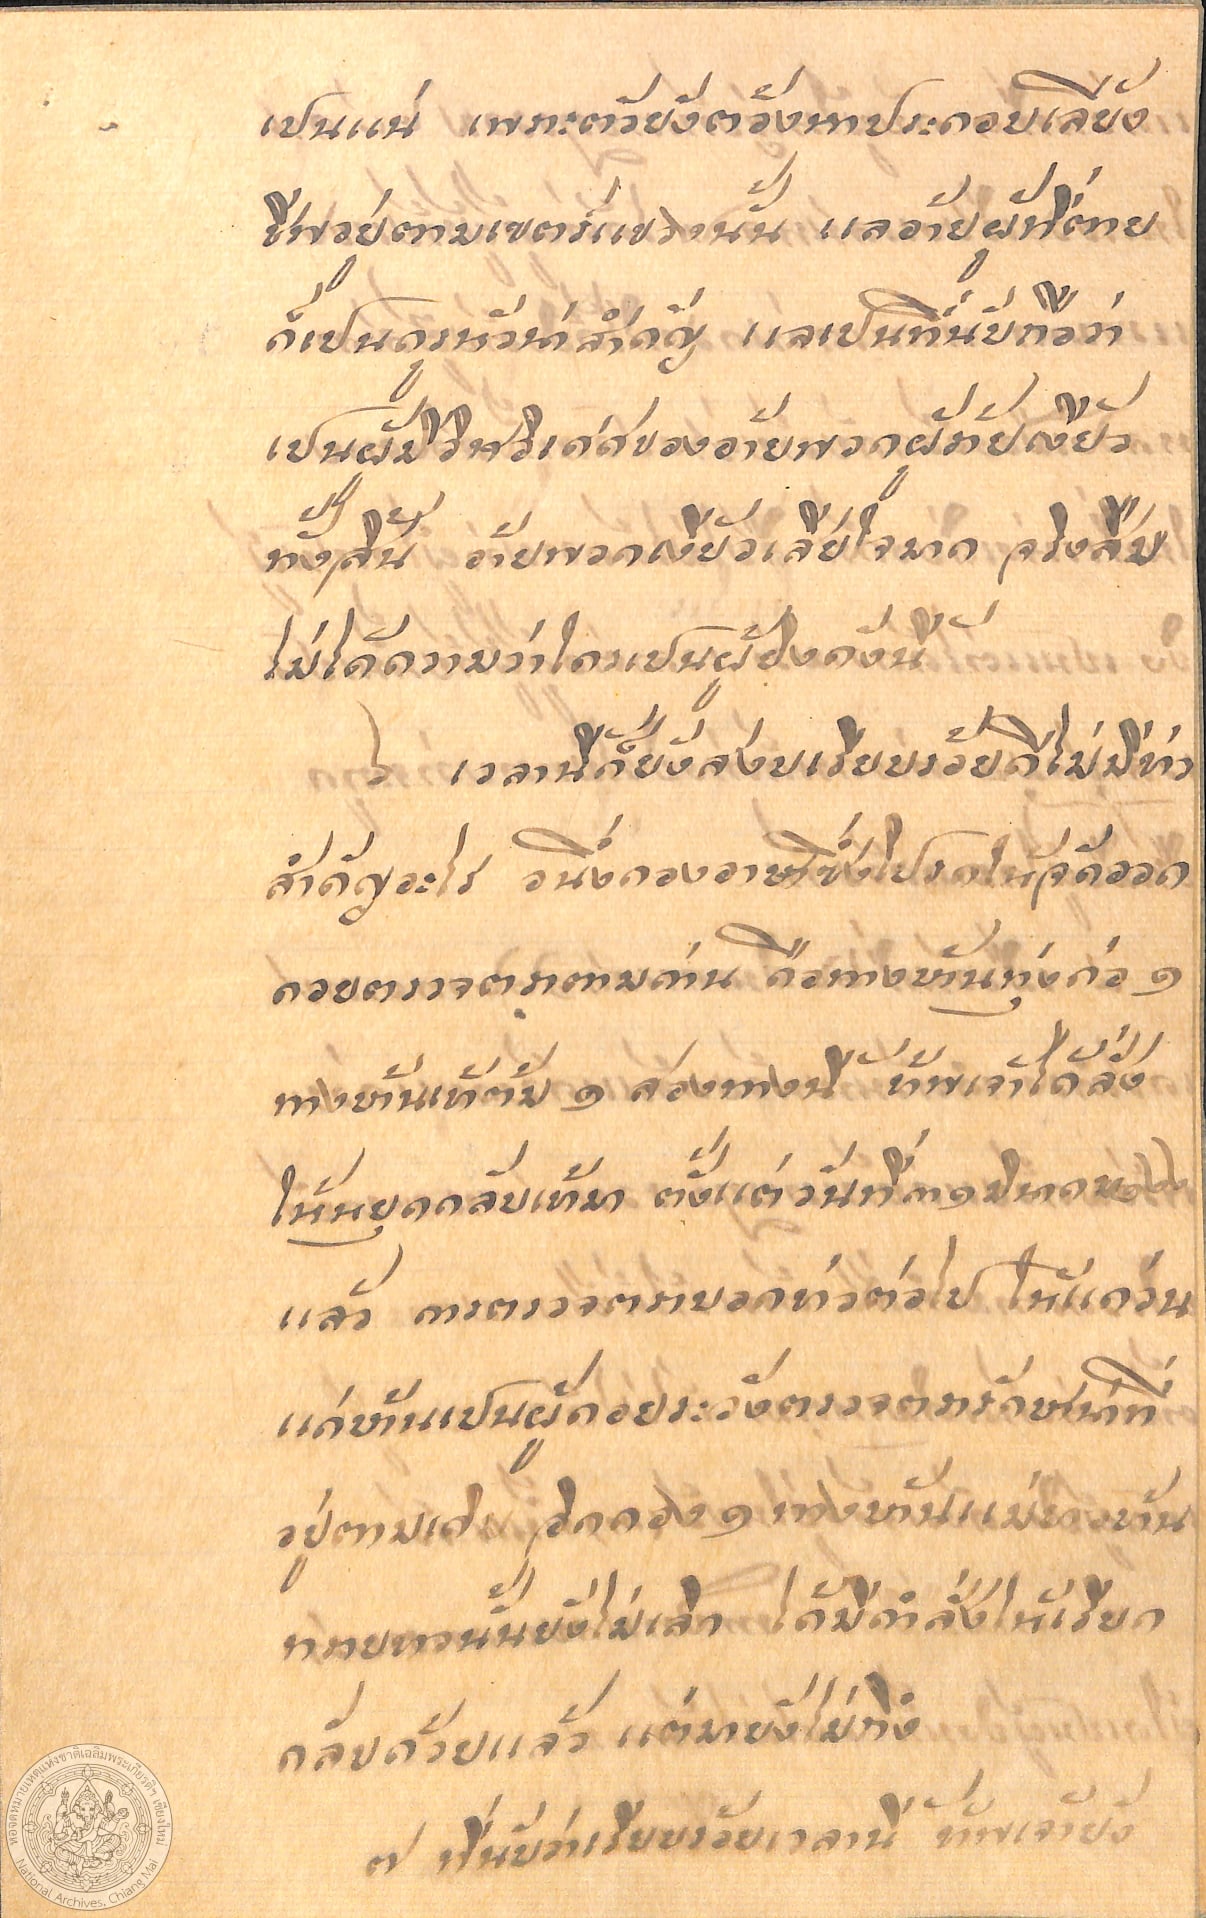 เปนแน่ เพราะตัวยังต้องหาประกอบเลี้ยง
ชีพอยู่ตามเขตร์แขวงนั้น แลอ้ายผู้ที่ตาย
ก็เปนครูหัวน่าสำคัญ แลเปนที่นับถือว่า
เปนผู้มี ของอ้ายพวกผู้ร้ายเงี้ยว
ทั้งสิ้น อ้ายพวกเงี้ยวเสียใจมาก จึงสืบ
ไม่ได้ความว่าใครเปนผู้ยิงดังนี้
๖ เวลานี้ก็ยังสงบเรียบร้อยดีไม่มีข่าว
สำคัญอะไร อนึ่งกองอาษาซึ่งโปรดให้จัดออก
คอยตรวจตราตามด่าน คือทางบ้านทุ่งก่อ ๑
ทางบ้าน ๑ สองทางนี้ ข้าพเจ้าได้สั่ง
ให้หยุดกลับเข้ามา ตั้งแต่วันที่ ๓๑ มีนาคม
แล้ว การตรวจตราบอกข่าวต่อไป ให้แคว่น
แก่บ้านเปนผู้คอยระวังตรวจตรารักษาน่าที่
อยู่ตามเดิม อีกกอง ๑ ทางบ้านแม่ บ้าน
นั้นยังไม่เลิก ได้มีคำสั่งให้เรียก
กลับด้วยแล้ว แต่มายังไม่ถึง
๗ ที่นับว่าเรียบร้อยเวลานี้ ข้าพเจ้ายัง
หอจดหมายเหตุแห่งชาติเฉลิมพระเกียรติฯ เชียงใหม่
National Archives, Chiang Mai